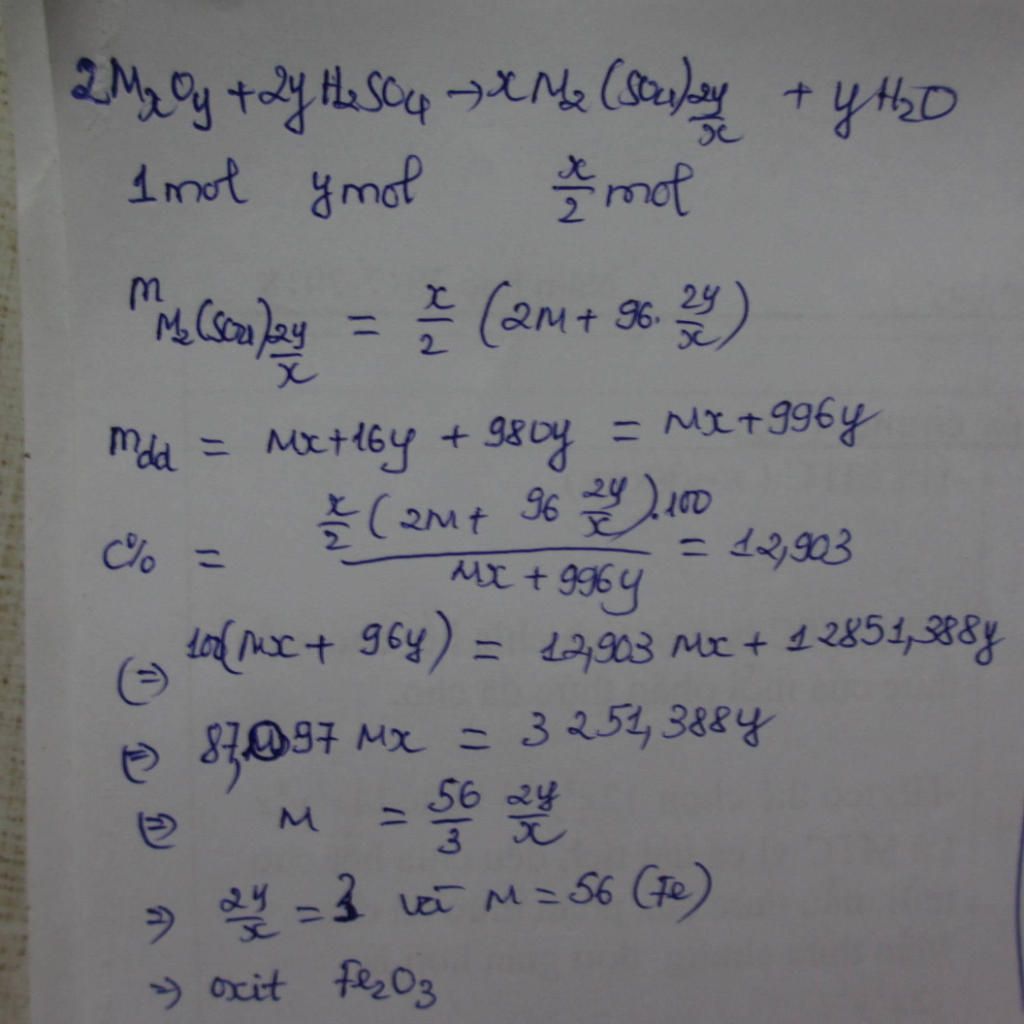 2MxOy + 2yH2SO4 → xM2(SO4)2y/x + yH2O
1mol ymol x/2 mol
mM2(SO4)2y/x = x/2 (2M + 96. 2y/x)
mdd = Mx+16y + 980y = Mx + 996y
C% = x/2 (2M + 96 2y/x).100 / Mx + 996y = 12,903
(=) 100(Mx + 96y) = 12,903 Mx + 12851,388y
(=) 87,097 Mx = 3251,388y
(=) M = 56/3 2y/x
=> 2y/x = 3 và M = 56 (Fe)
=> oxit Fe2O3